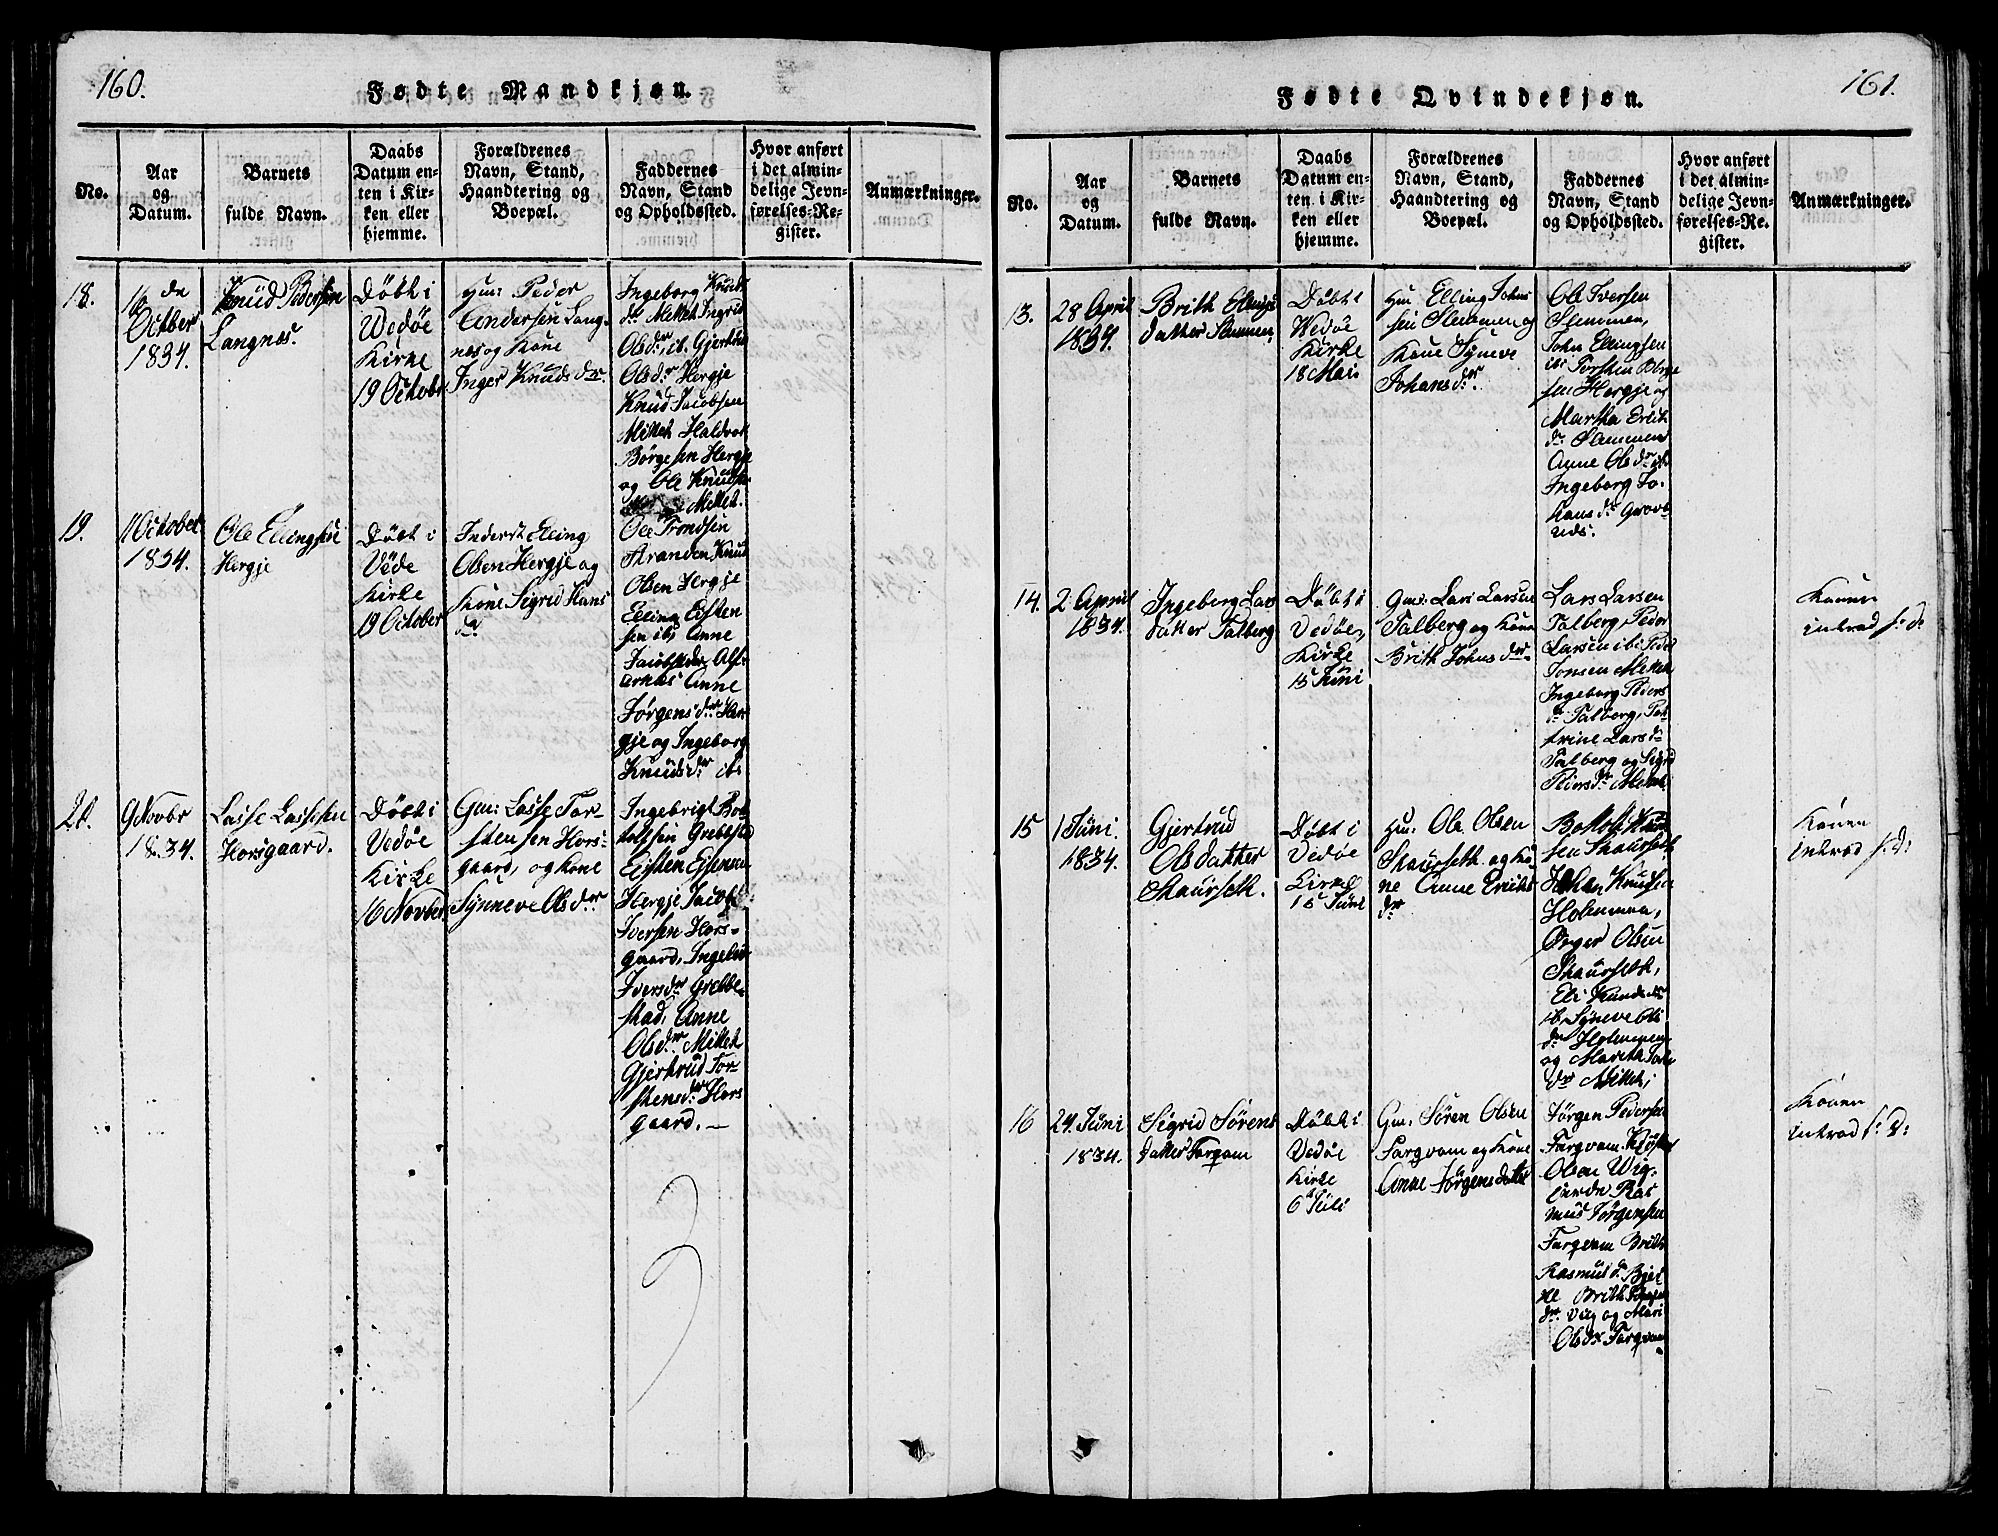 160.
Fødte Mandkjøn.
No.
Aar
og
Datum.
Barnets
fulde Navn.
Daabs
Datum en-
ten i Kir-
ken eller
hjemme.
Forældrenes
Navn, Stand,
Haandtering og
Boepæl.
Faddernes
Navn, Stand
og Opholdssted.
Hvor anført
i det almin-
delige Jevn-
førelses-Re-
gister.
Anmærkninger.
18.
16 de
Octber
1834.
Knud Pedersen
Langnes.
Døbt i
Wedøe
Kirke
19 October
Hm: Peder
Andersen Lang
nes og Kone
Inger Knuds dr.
Ingeborg Knuds
dr Mittet Ingrid
Olsdr, ib. Gjertrud
Olsdr Hergje
Knud Jacobsen
Mittet Haldvor
Børgesen Hergje
og Ole Knudsen
Mittet.
19.
11 October
1834.
Ole Ellingsen
Hergje
Døbt i
Vedø
Kirke
19 October
Inderst Elling
Olsen Hergje og
Kone Sigrid Hans
dr
Ole Trondsen
Stranden, Knud
Olsen Hergje
Elling Eisten
sen ibi Anne
Jacobsdr Alf-
arnæs Anne
Jørgens dr Her
gje og Ingeborg
Knuds dr ibi
20.
9 Novbr
1834.
Lasse Lassesen
Horsgaard.
Døbt i
Vedøe
Kirke
16 Novber
Gm: Lasse Tor-
stensen Hors-
gaard, og Kone
Synneve Ols dr
Ingebrigt Bot-
tolfsen Grebstad
Eisten Eistensen
Hergje Jacob
Iversen Hors-
gaard, Ingebor
Iversdr Grebbe-
stad, Anne
Olsdr Mittet
Gjertrud Tor-
stensdr Hors
gaard. —
161.
Fødte Qvindekjøn.
No.
Aar
og
Datum.
Barnets
fulde Navn.
Daabs
Datum en-
ten i Kir-
ken eller
hjemme.
Forældrenes
Navn, Stand,
Haandtering og
Boepæl.
Faddernes
Navn, Stand
og Opholdssted.
Hvor anført
i det almin-
delige Jevn-
førelses-Re-
gister.
Anmærkninger.
13.
28 April
1834.
Brith Ellings
datter Slemmen
Døbt i
Wedøe
Kirke
18 Mai
Hm Elling Johns
sen Slemmen og
Kone Syneve
Johans dr.
Ole Iversen
Slemmen,
John Ellingsen
ibi Torsten Børge
sen Hergje og
Martha Erick
dr Slemmen
Anne Ols dr ib
Ingeborg Jo-
hans dr
14.
2 April
1834.
Ingeborg Lars
datter Talberg
Døbt i
Vedøe
Kirke
15 Juni
Gm: Lars Larsen
Talberg og Kone
Brith Johns dr
Lars Larsen
Talberg, Peder
Larsen ibi Peder
Jonsen Mittet
Ingeborg Peders
dr Talberg, Pet-
trine Lars dr
Talberg og Sigrid
Piers dr Mittet
Konen
introd s: d:
15
1 Juni
1834.
Gjertrud
Olsdatter
Skaurseth.
Døbt i
Vedøe
Kirke
15 Juni
Hm: Ole Olsen
Skaurseth og Ko-
ne Anne Erichs
dr
Bottolf Knud
sen Skaurseth
Johan Knudsen
Holmmen,
Olsen
Skaurseth,
Eli Knuds dr
ib Syneve Ols
dr Holmmen
og Marith
dr Mittet,
Konen
introd s: d:
16
24 Juni
1834.
Sigrid Sørens
datter Torgvam
Døbt i
Vedøe
Kirke
6 Juli
Gm: Søren Olsen
Torgvam og Kone
Anne Jørgensdatter
Jørgen Pedersen
Torgvam
Olsen
Ras
mus Jørgensen
Torgvam Brith
Rasmus dr
Brith
dr og Mari
Olsdr Torgvam
Konen
introd s: d: